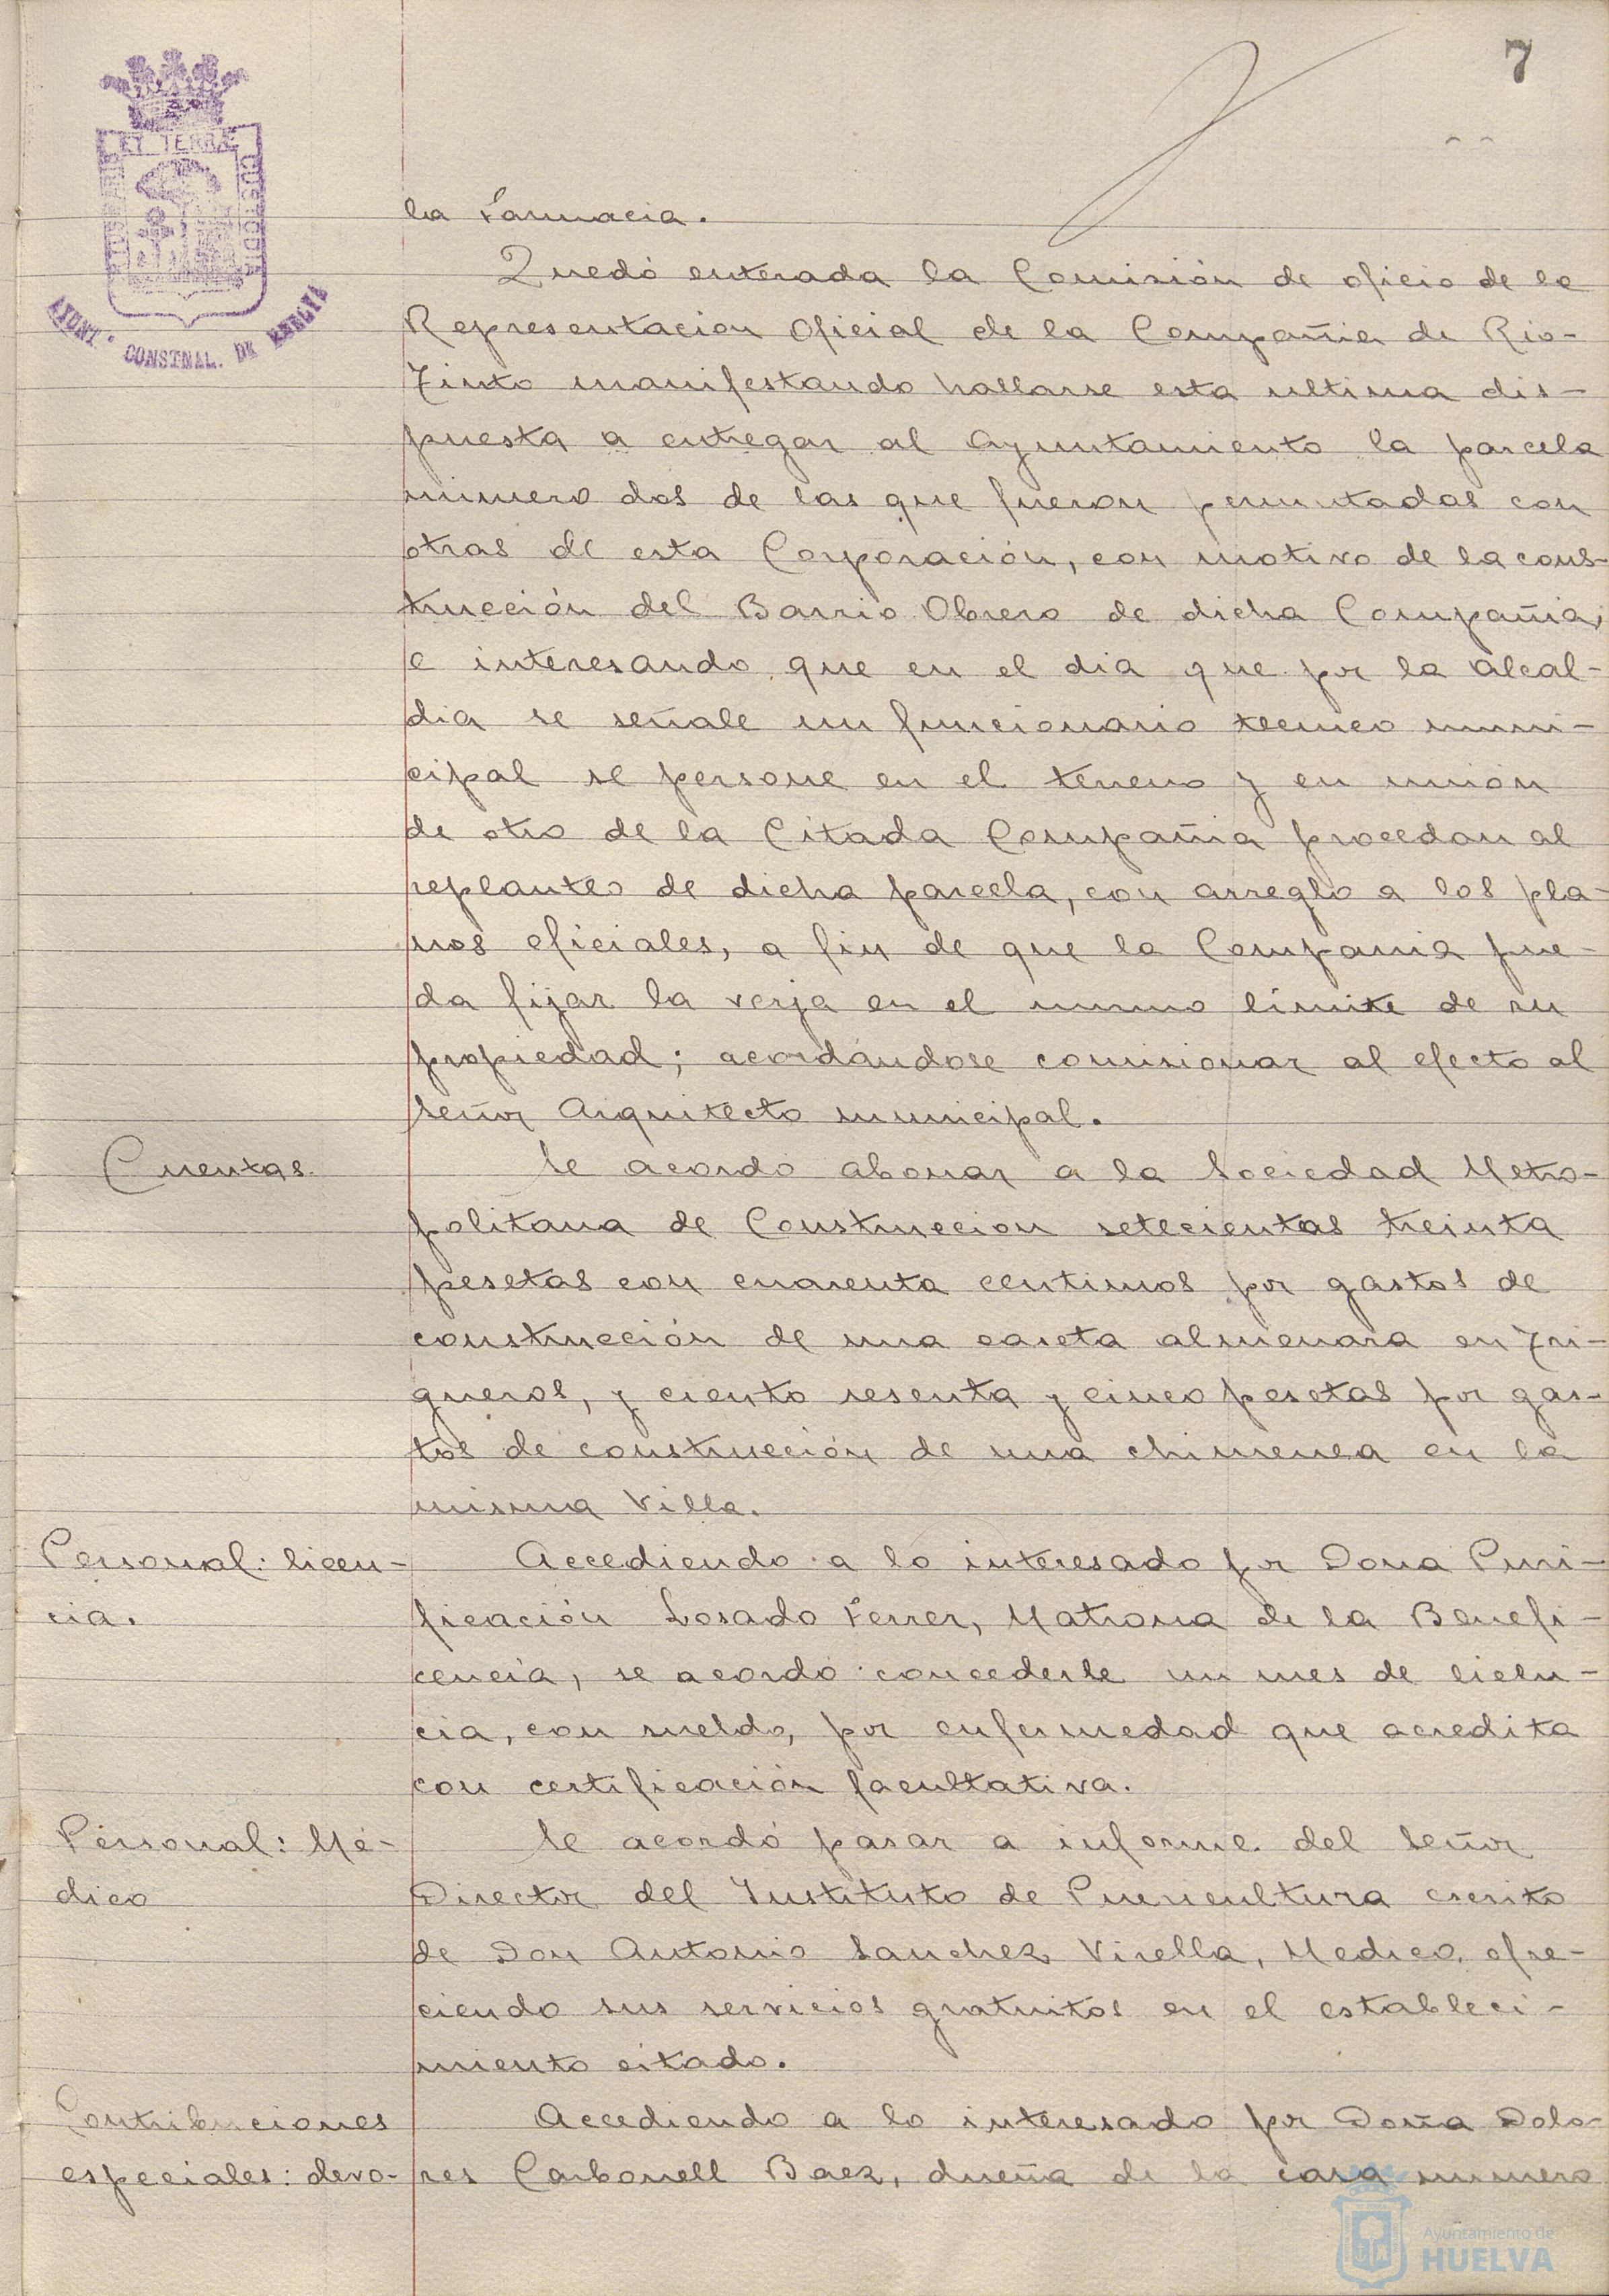 7
PORTUS MARIS
ET TERRÆ
CUSTODIA
AYUNT.º CONSTNAL. DE HUELVA
la Farmacia.
Quedó enterada la Comisión de oficio de la
Representacion Oficial de la Compañia de Rio-
Tinto manifestando hallarse esta ultima dis-
puesta a entregar al Ayuntamiento la parcela
número dos de las que fueron permutadas con
otras de esta Corporación, con motivo de la cons-
trucción del Barrio Obrero de dicha Compañia,
e interesando que en el dia que por la Alcal-
dia se señale un funcionario tecnico muni-
cipal se persone en el terreno y en unión
de otro de la Citada Compañia procedan al
replanteo de dicha parcela, con arreglo a los pla-
nos oficiales, a fin de que la Compania pue-
da fijar la verja en el mismo límite de su
propiedad; acordándose comisionar al efecto al
Señor Arquitecto municipal.
Cuentas.
Se acordó abonar a la Sociedad Metro-
politana de Construccion setecientas treinta
pesetas con cuarenta centimos por gastos de
construcción de una caseta almenara en Tri-
gueros, y ciento sesenta y cinco pesetas por gas-
tos de construcción de una chimenea en la
misma Villa.
Personal: licen-
cia.
Accediendo a lo interesado por Dona Puri-
ficación Losado Ferrer, Matrona de la Benefi-
cencia, se acordó concederle un mes de licen-
cia, con sueldo, por enfermedad que acredita
con certificación facultativa.
Personal: Mé-
dico
Se acordó pasar a informe del Señor
Director del Instituto de Puericultura escrito
de Don Antonio Sanchez Virella, Medico, ofre-
ciendo sus servicios gratuitos en el estableci-
miento citado.
Contribuciones
especiales: devo-
Accediendo a lo interesado por Doña Dolo-
res Carbonell Baez, dueña de la casa numero
Ayuntamiento de
HUELVA